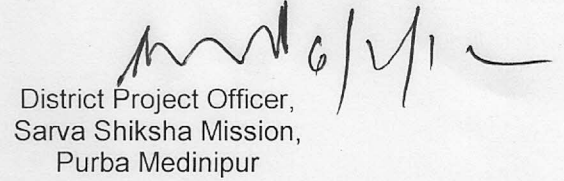 6/2/12
District Project Officer,
Sarva Shiksha Mission,
Purba Medinipur